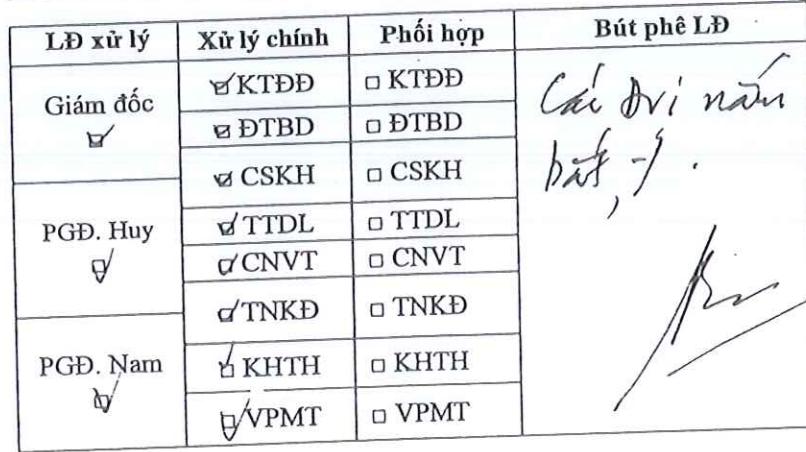 LĐ xử lý Xử lý chính Phối hợp Bút phê LĐ
Giám đốc
☑
☑ KTĐĐ ☐ KTĐĐ
☑ ĐTBD ☐ ĐTBD
☑ CSKH ☐ CSKH
PGĐ. Huy
☑
☑ TTDL ☐ TTDL
☑ CNVT ☐ CNVT
☑ TNKĐ ☐ TNKĐ
PGĐ. Nam
☑
☑ KHTH ☐ KHTH
☑ VPMT ☐ VPMT
Các đvị nắm
bắt,